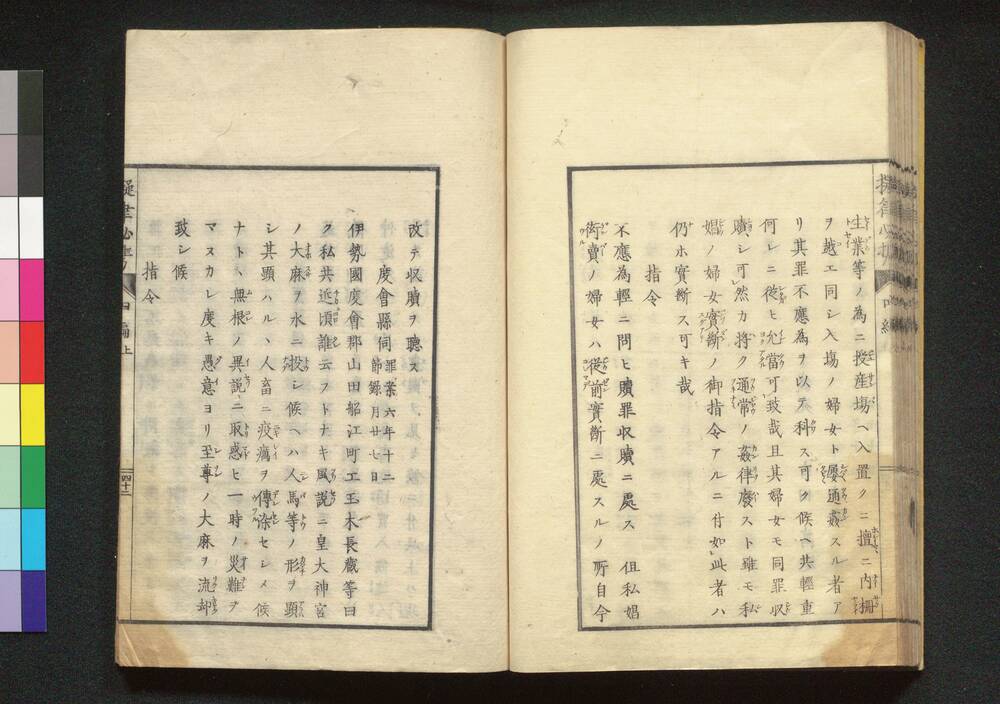 生業等ノ為ニ授産塲ヘ入置クニ擅ニ内柵
ヲ越エ同シ入塲ノ婦女ト屡通姦スル者ア
リ其罪不應為ヲ以テ科ス可ク候ヘ共輕重
何レニ從ヒ允當可致哉且其婦女モ同罪収
贖シ可然カ將タ通常ノ姦律廢スト雖モ私
娼ノ婦女實斷ノ御指令アルニ付如此者ハ
仍ホ實斷ス可キ哉
指令
不應為輕ニ問ヒ贖罪収贖ニ處ス但私娼
衒賣ノ婦女ハ從前實斷ニ處スルノ所自今
改テ収贖ヲ聴ス
度會縣伺
罪案六年十二
節録月廿七日
伊勢國度會郡山田船江町工玉木長藏等曰
ク私共近頃誰云フトナキ風説ニ皇大神宮
ノ大麻ヲ水ニ投シ候ヘハ人馬等ノ形ヲ顕
シ其頭ハルヽ人畜ニ疫癘ヲ傳染セシメ候
ナトヽ無根ノ異説ニ取惑ヒ一時ノ災難ヲ
マヌカレ度キ愚意ヨリ至尊ノ大麻ヲ流却
致シ候
指令
四十二